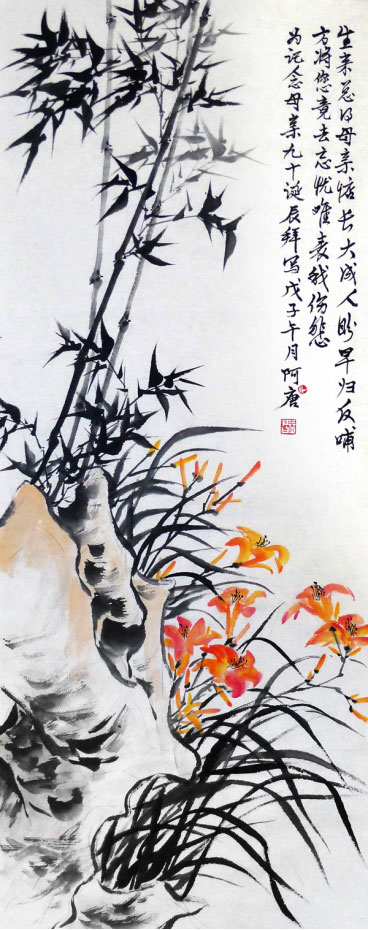 生来总得母亲恬长大成人盼早归反哺
方将您竟去忘忧唯表我伤悲
为记念母亲九十诞辰拜写戊子午月阿唐